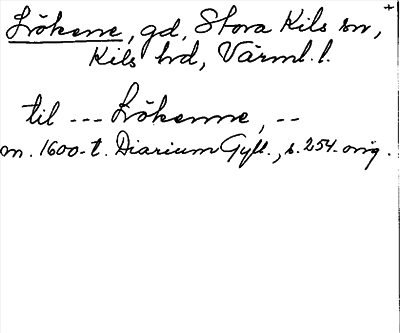 Lökene, gd, Stora Kils sn,
Kils hd, Värml. l.
till --- Lökenne, --
m. 1600-t. Diarium Gyll., s. 254. orig.